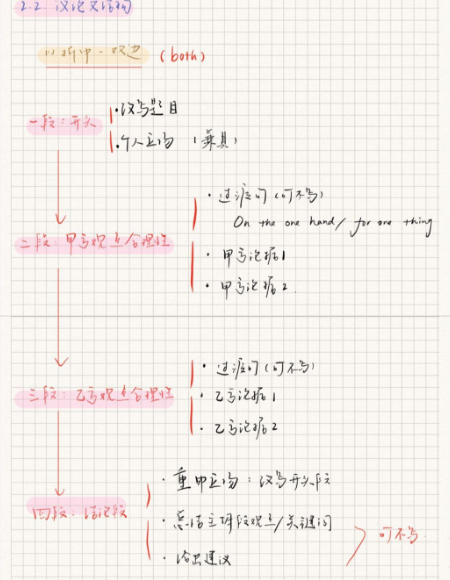 2.2. 议论文结构
(1) 折中-双边 (both)
一段:开头
·改写题目
·个人立场 (兼具)
·过渡句(可不写)
On the one hand/ for one thing
二段:甲方观点合理性
·甲方论据1
·甲方论据2.
·过渡句(可不写)
三段:乙方观点合理性
·乙方论据1
·乙方论据2
·重申立场:改写开头段
四段:结论段
·总结主体段观点/关键词
·给出建议
可不写